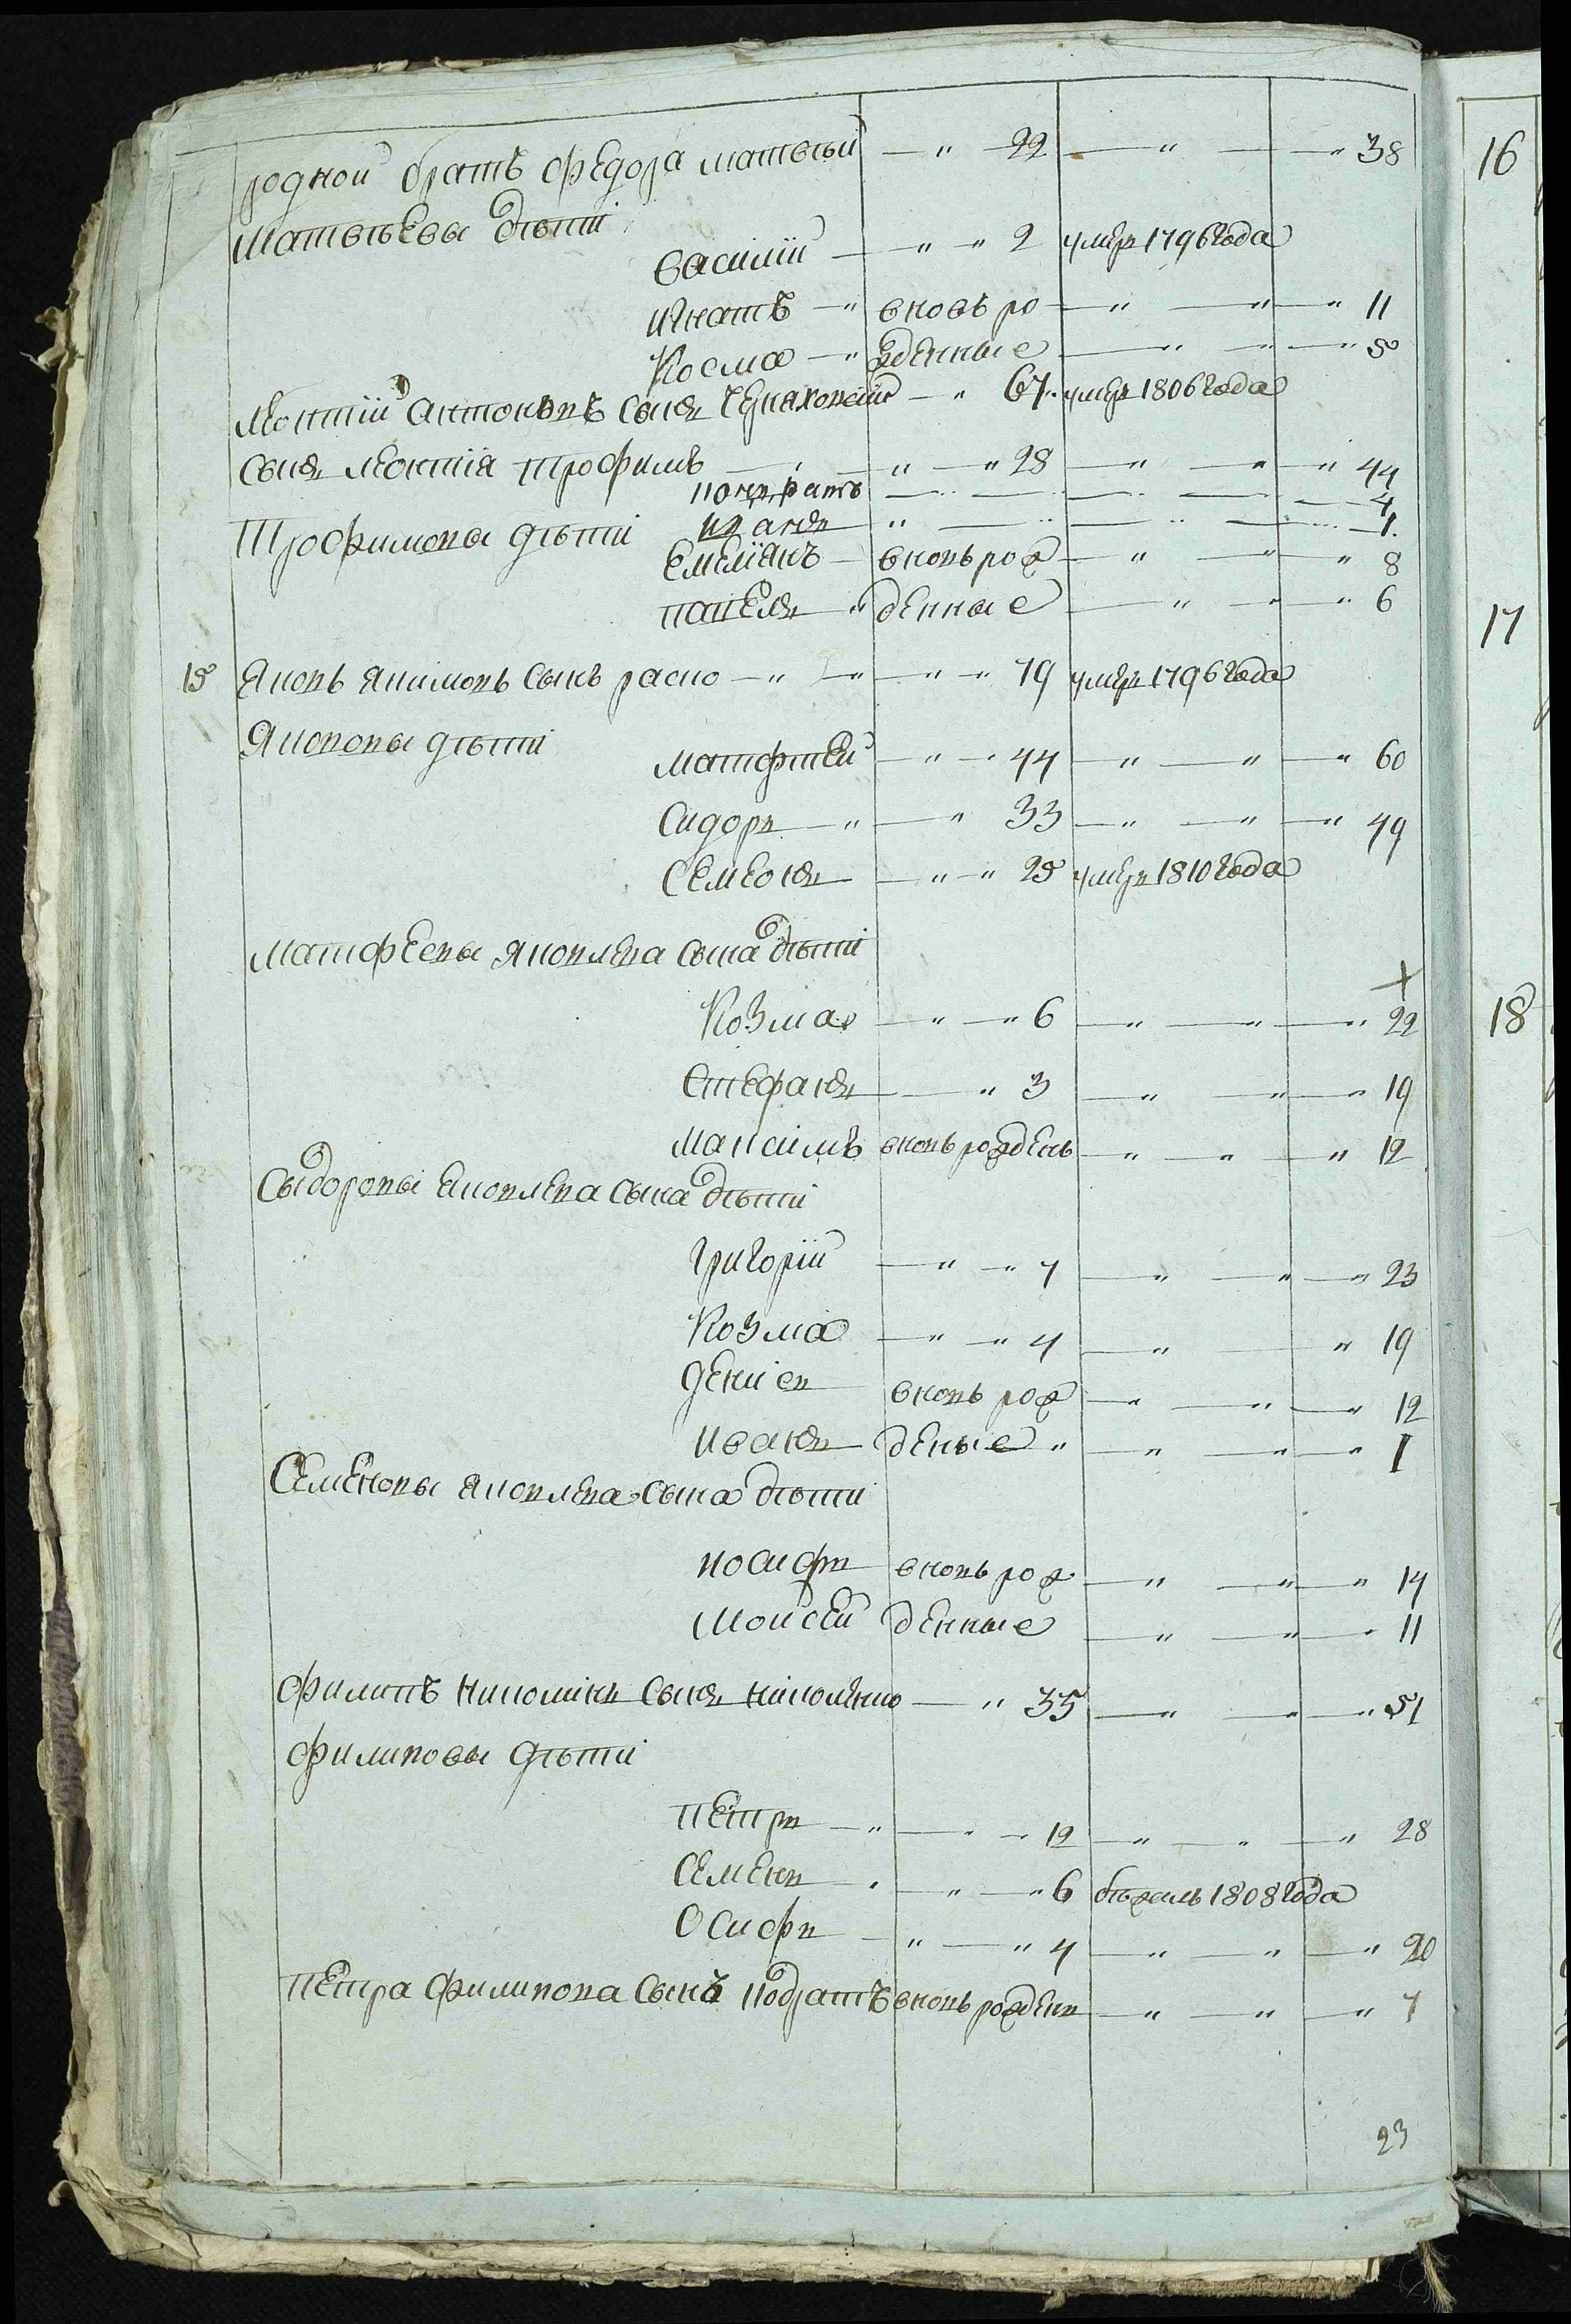 родной братъ Федора матвѣй — " 22 — " — " 38
16
матвѣевы дѣти
василий — " — " 2 умре 1796 года
игнатъ — " вновь ро — " — " — " 11
Косма — " жденные — " — " — " 5
Леонтий антоновъ сынъ — " 67 умре 1806 года
сынъ леонтия трофимъ — " — " 28 — " — " — " 44
4
Трофимовы дѣти иванъ " — " — " — 1
Емелиянъ — вновь рож — " — " — " 8
павелъ — " денные — " — " — " 6
17
15 Яковъ якимовъ сынъ — " — " — " — " 79 умре 1796 года
Якововы дѣти
матфтей — " — " 44 — " — " — " 60
Сидоръ — " — " 33 — " — " — " 49
Семеонъ — " — " 25 умре 1810 года
матфеевы яковлева сына дѣти
Козма — " — " 6 — " — " — " 22
18
Стефанъ — " 3 — " — " — " 19
Максимъ вновь рожденъ — " — " — " 12
Сыдоровы яковлева сына дѣти
Григорий — " — " 7 — " — " — " 23
Козма — " — " 4 — " — " 19
Денисъ вновь рож — " — " — " 12
иванъ деные " — " — " — " 1
Семеновы яковлева сына дѣти
иосифъ вновь рож — " — " — " 14
Моисей денные — " — " — " 11
Филипъ сынъ — " 35 — " — " — " 51
Филиповы дѣти
Петръ — " — " — 12 — " — " — " 28
Семенъ — " — " — " 6 бѣжалъ 1808 года
Осифъ — " — " 4 — " — " — " 20
Петра Филипова сынъ вновь рожденъ — " — " — " 7
23